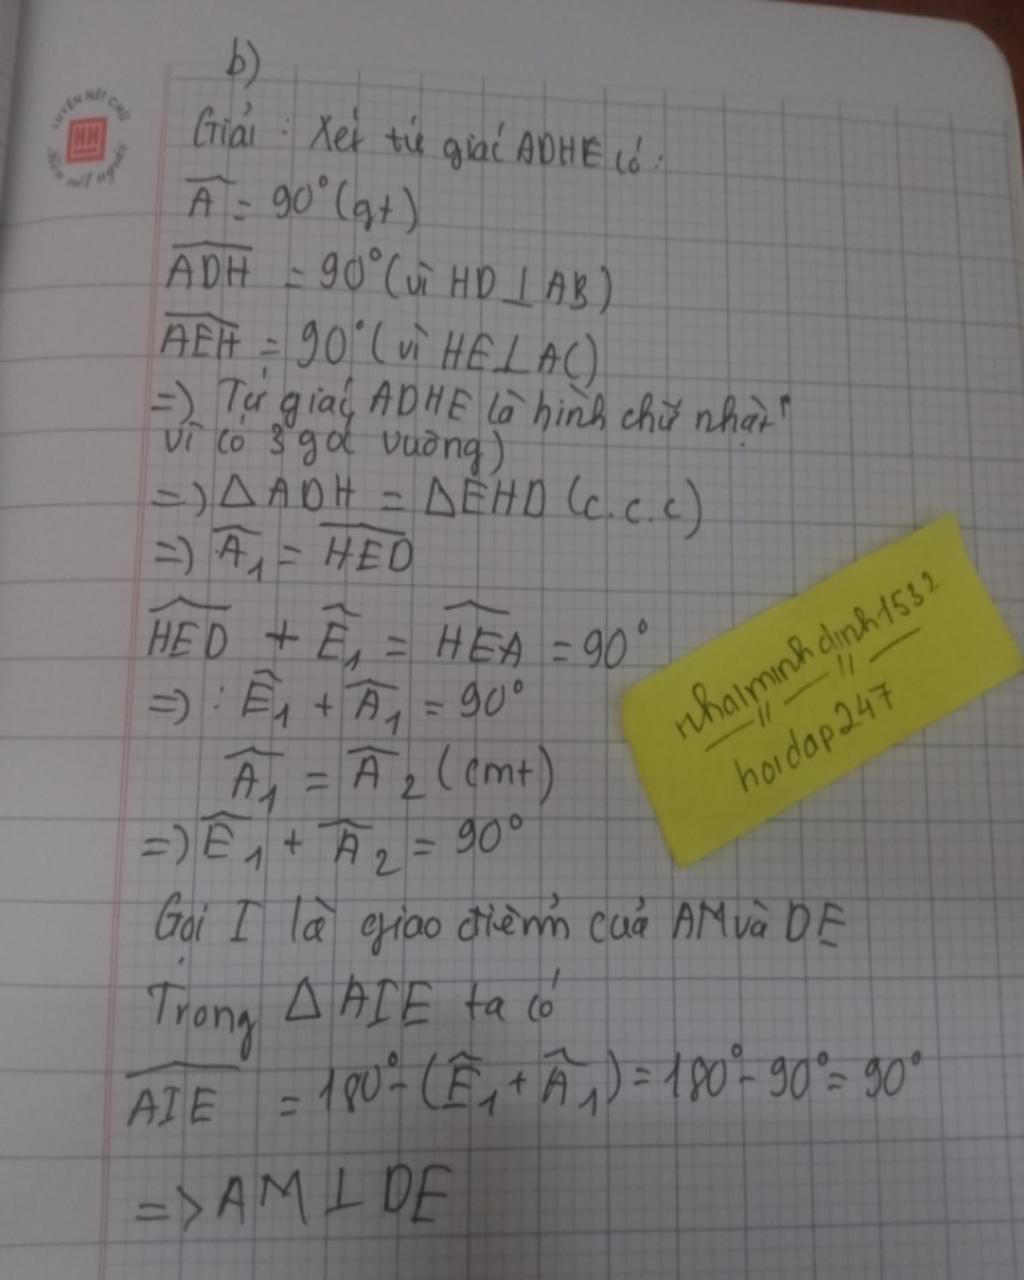 b)
LUYỆN NÉT CHỮ
NN
Rèn nết người
Giải : Xét tứ giác ADHE có:
A = 90° (gt)
ADH = 90° (vì HD ⊥ AB)
AEH = 90° (vì HE ⊥ AC)
=> Tứ giác ADHE là hình chữ nhật (
vì có 3 góc vuông)
=> Δ ADH = Δ EHD (c.c.c)
=> A₁ = HED
HED + E₁ = HEA = 90°
=> : E₁ + A₁ = 90°
A₁ = A₂ (cmt)
=> E₁ + A₂ = 90°
Gọi I là giao điểm của AM và DE
Trong Δ AIE ta có
AIE = 180° - (E₁ + A₁) = 180° - 90° = 90°
=> AM ⊥ DE
nha1minhdinh1532
hoidap247